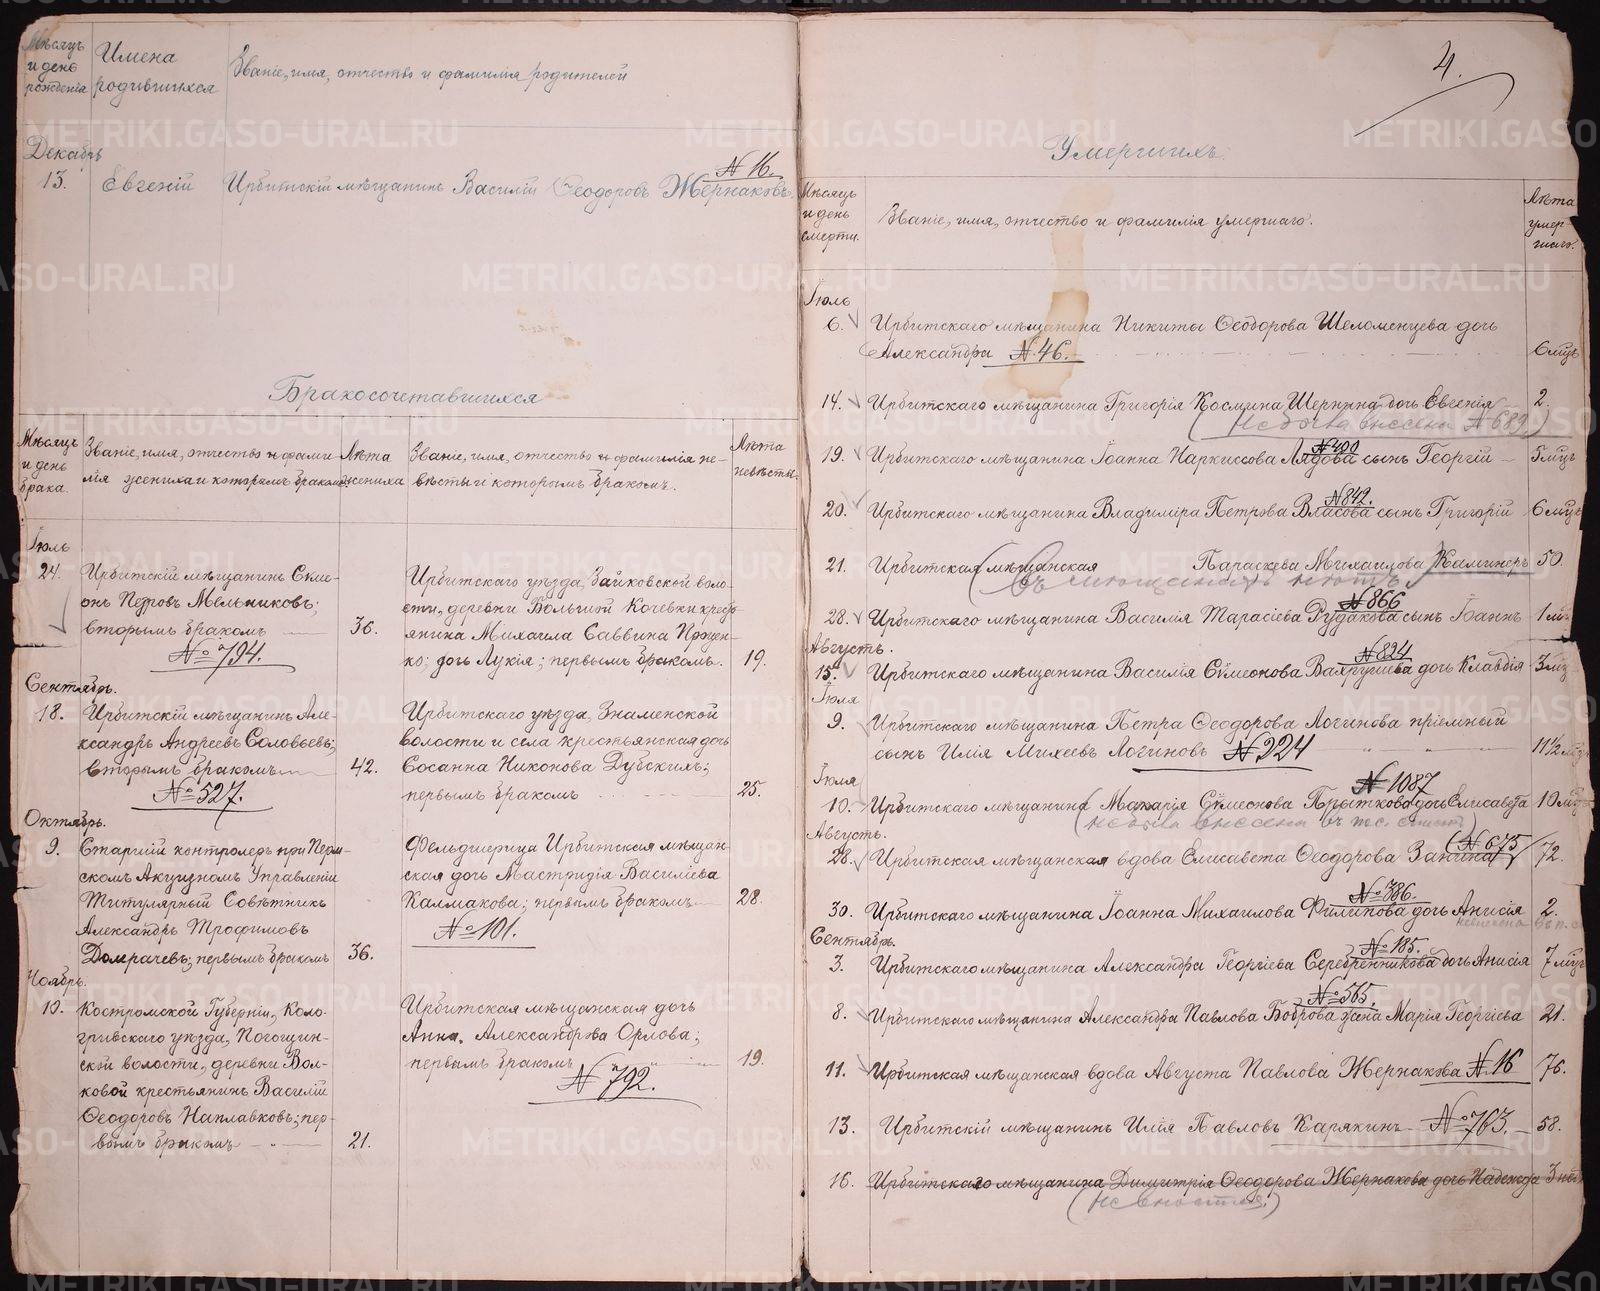 Мѣсяцъ и день рожденія
Имена родившихся
Званіе, имя, отчество и фамилія родителей
Декабрь
№ 16.
13. Евгеній Ирбитскій мѣщанинъ Василій Ѳеодоровъ Жернаковъ.
Бракосочетавшихся
Мѣсяцъ и день брака.
Званіе, имя, отчество и фамилія жениха и которымъ бракомъ
Лѣта жениха
Званіе, имя, отчество и фамилія невѣсты и которымъ бракомъ.
Лѣта невѣсты.
Іюль
24. Ирбитскій мѣщанинъ Симе-
онъ Петровъ Мельниковъ;
вторымъ бракомъ 36.
№ 794.
Ирбитскаго уѣзда, Зайковской воло-
сти, деревни Большой Кочевки кресть-
янина Михаила Саввина
ко; дочь Лукія; первымъ бракомъ. 19.
Сентябрь.
18. Ирбитскій мѣщанинъ Але-
ксандръ Андреевъ Соловьевъ;
вторымъ бракомъ 42.
№ 527.
Ирбитскаго уѣзда, Знаменской
волости и села крестьянская дочь
Сосанна Никонова Дубскихъ;
первымъ бракомъ 25.
Октябрь.
9. Старшій контролеръ при Перм-
скомъ Акцизномъ Управленіи
Титулярный Совѣтникъ
Александръ Трофимовъ
Домрачевъ; первымъ бракомъ 36.
Фельдшерица Ирбитская мѣщан-
ская дочь Мастридія Василіева
Калмакова; первымъ бракомъ 28.
№ 101.
Ноябрь.
10. Костромской Губерніи, Коло-
гривскаго уѣзда,
ской волости, деревни Вол-
ковой крестьянинъ Василій
Ѳеодоровъ Наплавковъ; пер-
вымъ бракомъ 21.
Ирбитская мѣщанская дочь
Анна Александрова Орлова;
первымъ бракомъ 19.
№ 792.
4.
Умершихъ
Мѣсяцъ и день смерти.
Званіе, имя, отчество и фамилія умершаго.
Лѣта умершаго.
Іюль
6. Ирбитскаго мѣщанина Никиты Ѳеодорова Шеломенцева дочь
Александра № 46. 6 мцъ
14. Ирбитскаго мѣщанина Григорія Космина Шернина дочь Евгенія 2.
(не была внесена № 689)
№ 400
19. Ирбитскаго мѣщанина Іоанна Наркиссова Лядова сынъ Георгій 5 мцъ
№ 842.
20. Ирбитскаго мѣщанина Владиміра Петрова Власова сынъ Григорій 6 мцъ
21. Ирбитская (мѣщанская Параскева Михаилова Каминеръ 50.
въ мѣщанахъ нѣтъ)
№ 866
28. Ирбитскаго мѣщанина Василія Тарасіева Рудакова сынъ Іоаннъ 1 мцъ
Августъ.
№ 824
15. Ирбитскаго мѣщанина Василія Сѵмеонова Вахрушева дочь Клавдія 3 мцъ
Іюля
9. Ирбитскаго мѣщанина Петра Ѳеодорова Логинова пріемный
сынъ Илія Михеевъ Логиновъ № 224 11½ мцъ
Іюля
№ 1087
10. Ирбитскаго мѣщанина Макарія Сѵмеонова Прыткова дочь Елисавета 10 мцъ
(не была внесена въ п.с.
Августъ.
(№ 675)
28. Ирбитская мѣщанская вдова Елисавета Ѳеодорова Занина 72.
№ 386.
30. Ирбитскаго мѣщанина Іоанна Михаилова Филипова дочь Анисія 2.
Сентябрь.
№ 185.
3. Ирбитскаго мѣщанина Александра Георгіева Серебренникова дочь Анисія 7 мцъ
№ 565.
8. Ирбитскаго мѣщанина Александра Павлова Боброва жена Марія Георгіева 21.
11. Ирбитская мѣщанская вдова Августа Павлова Жернакова № 16 76.
13. Ирбитскій мѣщанинъ Илія Павловъ Карякинъ № 763. 58.
16. Ирбитскаго мѣщанина Димитрія Ѳеодорова Жернакова дочь Надежда 3 нед.
METRIKI.GASO-URAL.RU